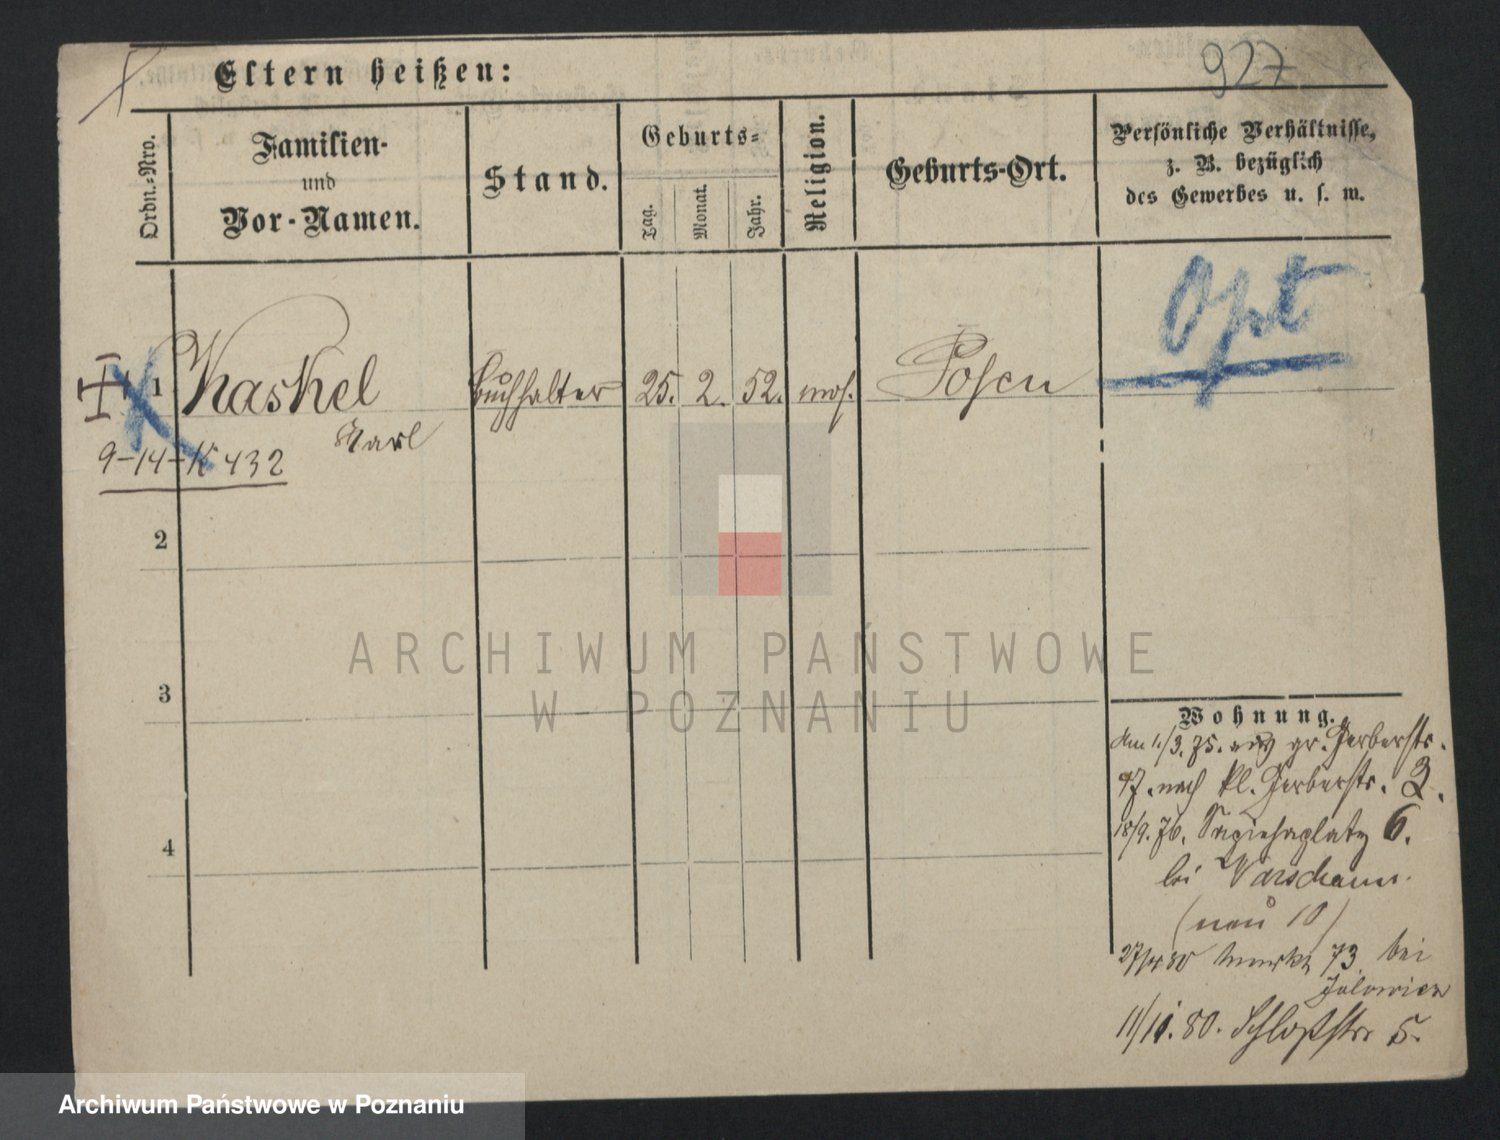 927
Eltern heißen:
Ordn.-Nro.
Familien-
und
Vor-Namen.
Stand.
Geburts-
Tag.
Monat.
Jahr.
Religion.
Geburts-Ort.
Persönliche Verhältnisse,
z. B. bezüglich
des Gewerbes u. s. w.
Opt
1 Kaskel Buchhalter 25. 2. 52. mos. Posen
Karl
9-14-K 432
2
3
4
Wohnung.
Am 1./3. 75. gr. Gerberstr.
47. nach kl. Gerberstr. 3.
18/9. 76. Sapiehaplatz 6.
bei Warschauer
(neu 10)
80 Markt 73 bei
Jolowicz
11/11. 80. Schloßstr 5.
ARCHIWUM PAŃSTWOWE
W POZNANIU
Archiwum Państwowe w Poznaniu